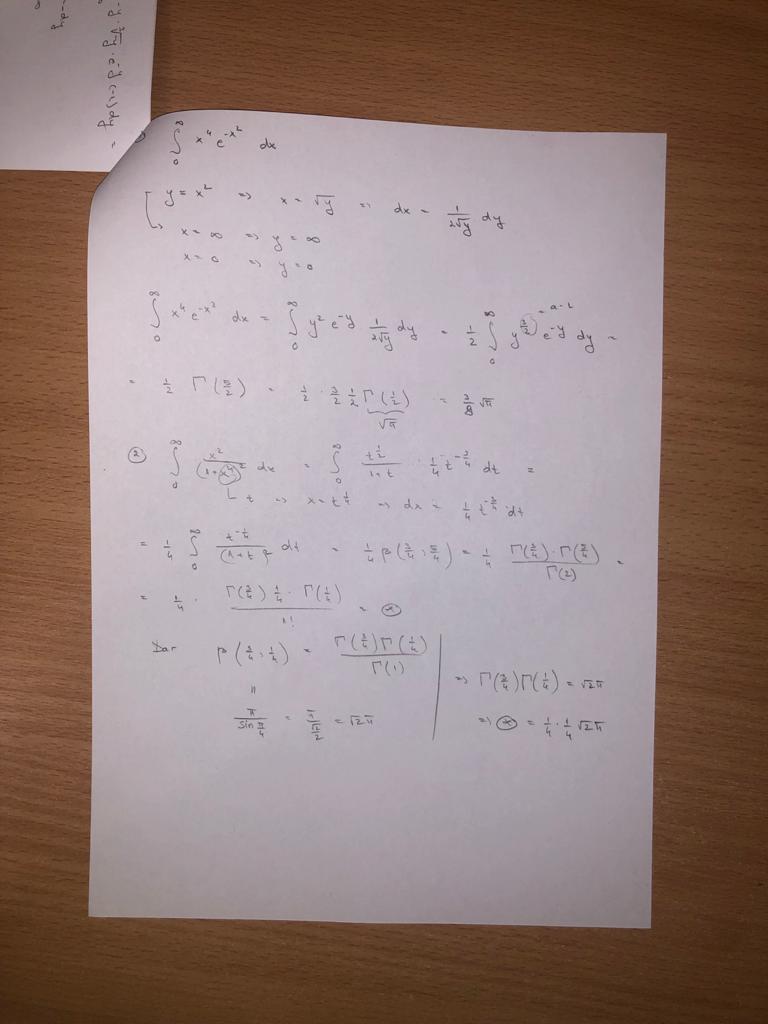 ∫₀^∞ x⁴ e^{-x²} dx
y = x² => x = √y => dx = 1/(2√y) dy
x = ∞ => y = ∞
x = 0 => y = 0
∫₀^∞ x⁴ e^{-x²} dx = ∫₀^∞ y² e^{-y} 1/(2√y) dy = 1/2 ∫₀^∞ y^{3/2} e^{-y} dy =
= a-1
= 1/2 Γ(5/2) = 1/2 · 3/2 1/2 Γ(1/2) = 3/8 √π
√π
② ∫₀^∞ x²/(1+x⁴)² dx = ∫₀^∞ t^{1/2}/(1+t) · 1/4 t^{-3/4} dt =
t => x = t^{1/4} => dx = 1/4 t^{-3/4} dt
= 1/4 ∫₀^∞ t^{-1/4}/(1+t)² dt = 1/4 β(3/4; 5/4) = 1/4 Γ(3/4)·Γ(5/4)/Γ(2) =
= 1/4 · Γ(3/4) 1/4 · Γ(1/4)/1! = ⊛
Dar β(3/4; 1/4) = Γ(3/4)Γ(1/4)/Γ(1)
=> Γ(3/4)Γ(1/4) = √2π
π/sin(π/4) = π/(√2/2) = √2π
=> ⊛ = 1/4 · 1/4 √2π